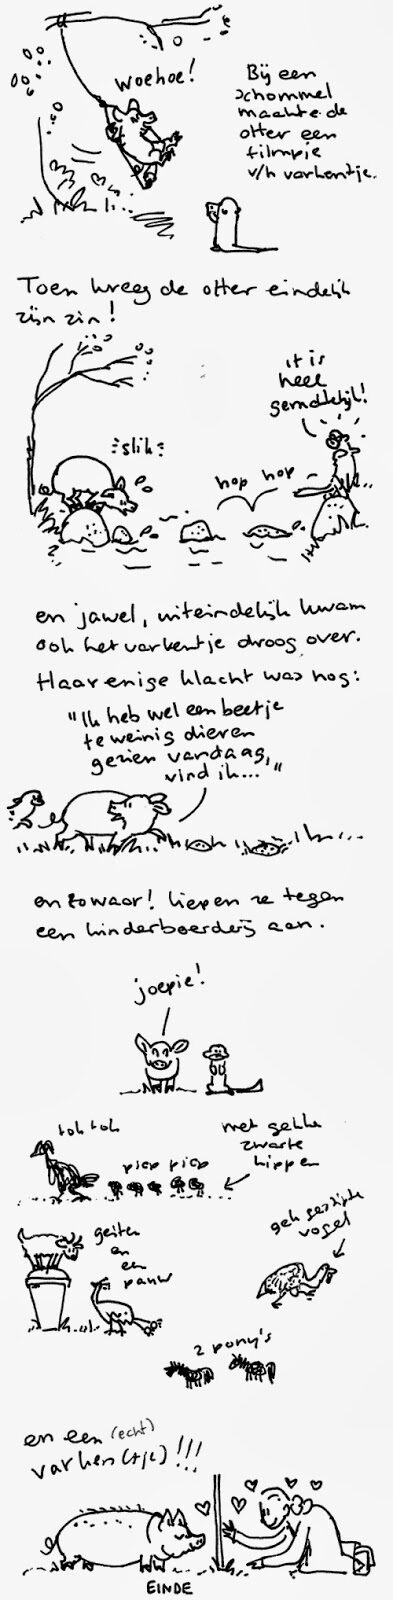 woehoe!
Bij een
schommel
maakte de
otter een
filmpje
v/h varkentje.
Toen kreeg de otter eindelijk
zijn zin!
it is
heel
gemakkelijk!
slik
hop hop
en jawel, uiteindelijk kwam
ook het varkentje droog over.
Haar enige klacht was nog:
"Ik heb wel een beetje
te weinig dieren
gezien vandaag,
vind ik..."
en zowaar! liepen ze tegen
een kinderboerderij aan.
joepie!
tok tok
piep piep
met gekke
zwarte
kippen
geiten
en
een
pauw
gek gestipte
vogel
2 pony's
en een (echt)
varken(tje)!!!
EINDE